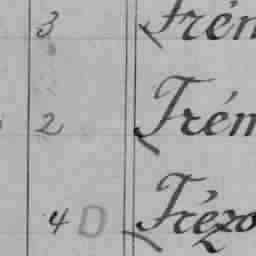 3 Frém
2 Trém
4 D Frézo